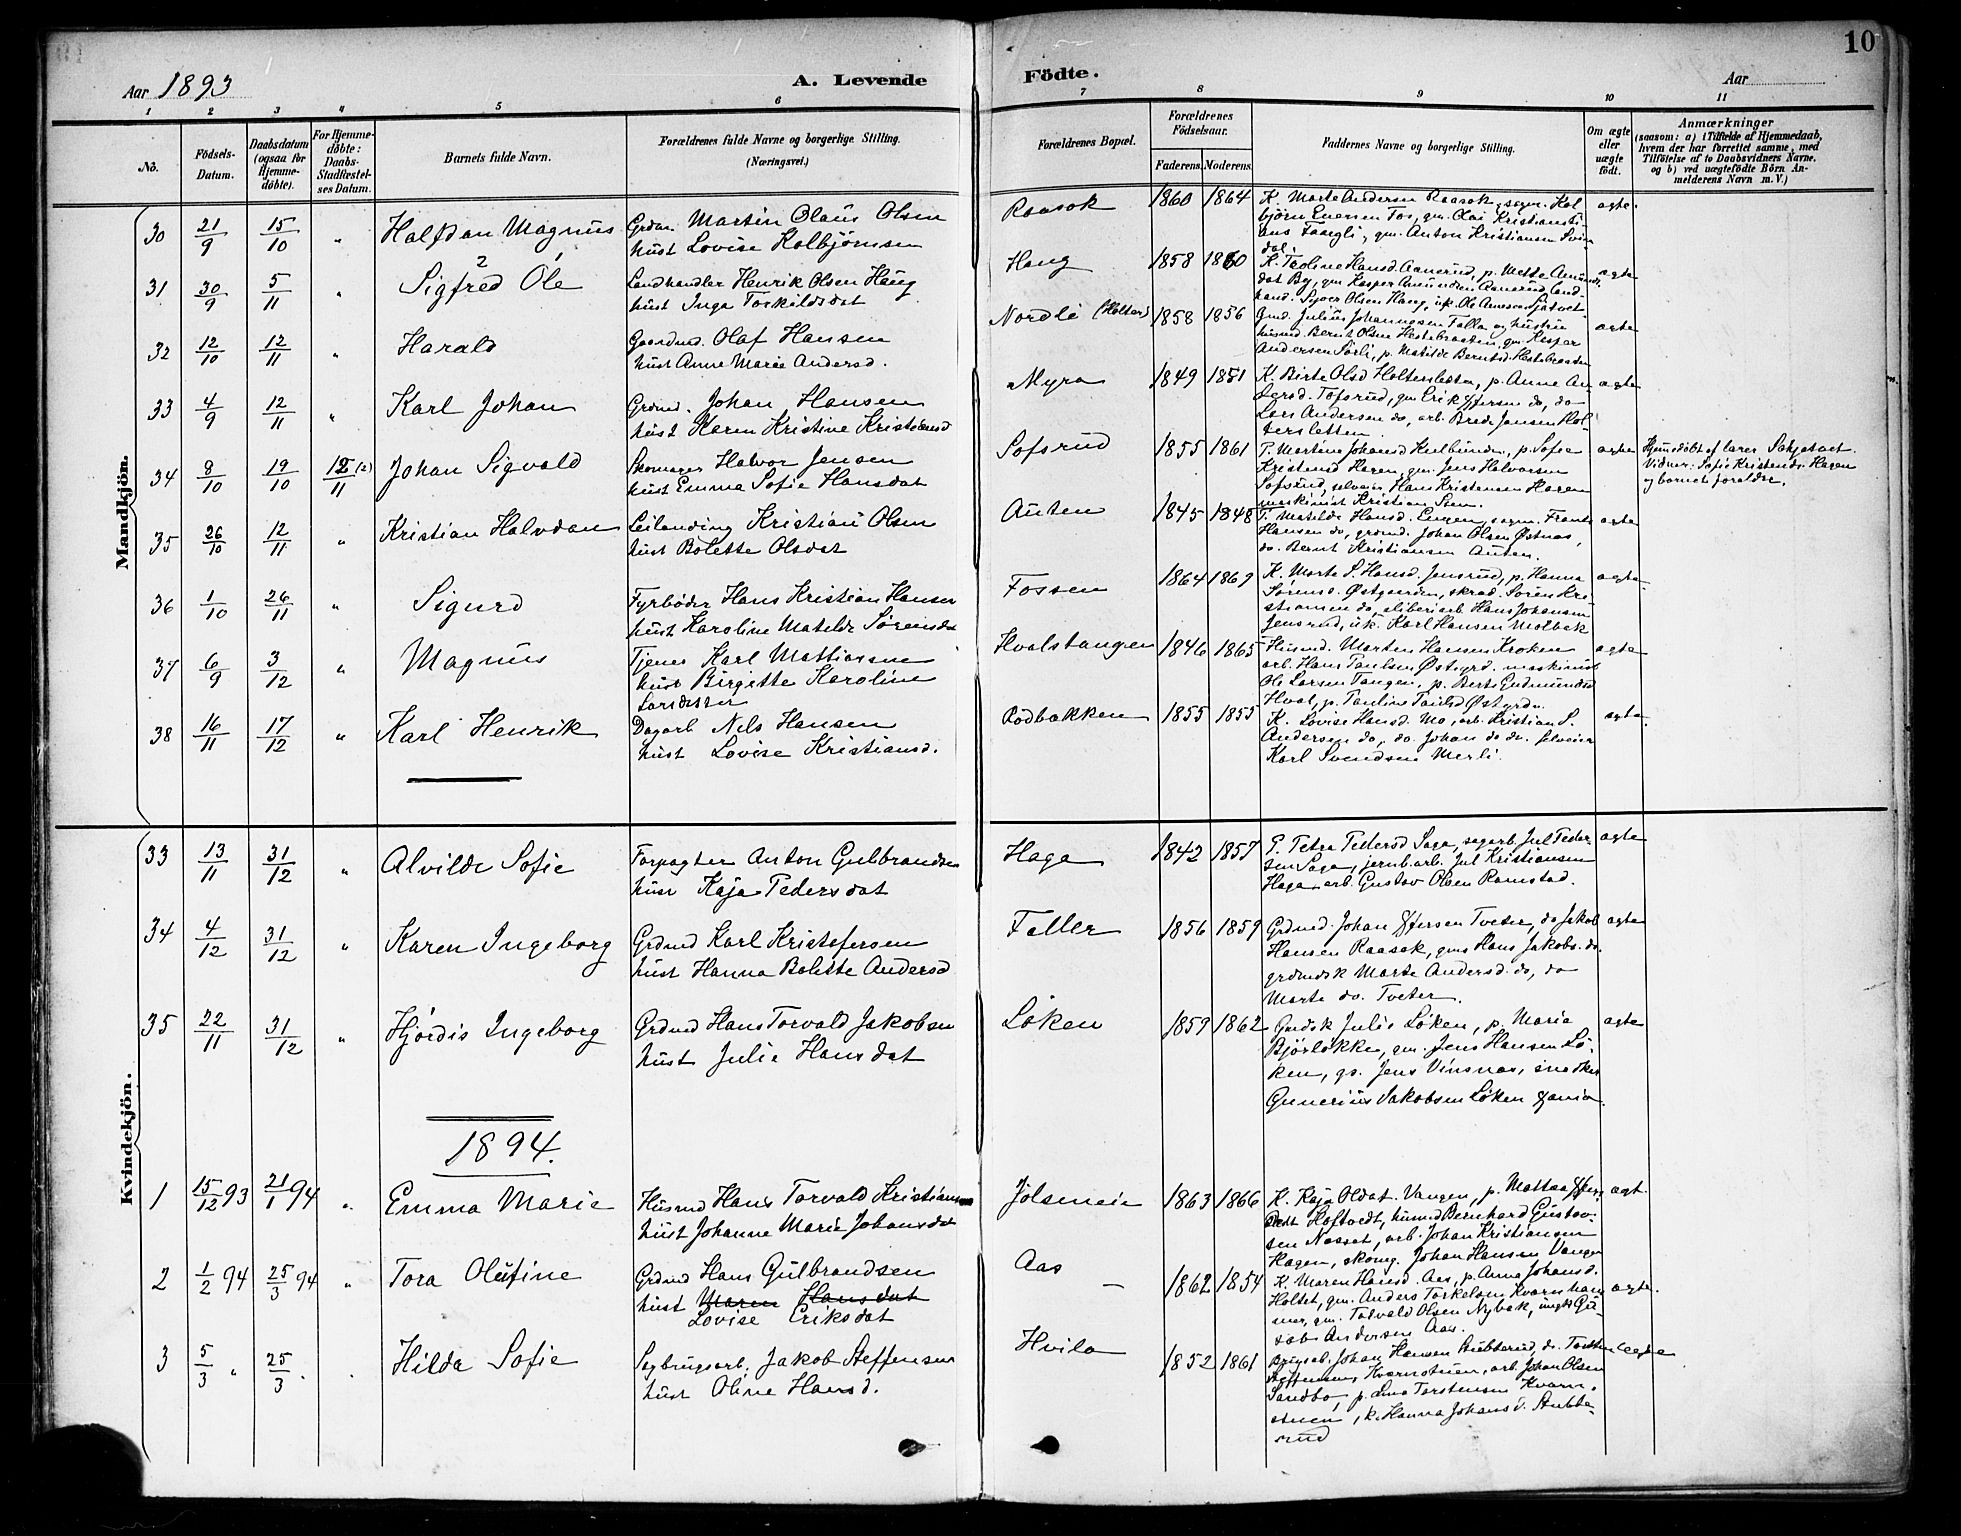 10
Aar 1893
A. Levende Födte.
Aar
1 2 3 4 5 6 7 8 9 10 11
No.
Födsels-Datum.
Daabsdatum (ogsaa for Hjemmedöbte).
For Hjemmedöbte: Daabs-Stadfæstelses Datum.
Barnets fulde Navn.
Forældrenes fulde Navne og borgerlige Stilling. (Næringsvei.)
Forældrenes Bopæl.
Forældrenes Födselsaar.
Faderens.
Moderens.
Faddernes Navne og borgerlige Stilling.
Om ægte eller uægte födt.
Anmærkninger
(saasom: a) i Tilfælde af Hjemmedaab, hvem der har forrettet samme, med Tilföielse af to Daabsvidners Navne, og b) ved uægtefödte Börn Anmelderens Navn m. V.)
Mandkjön.
30 21/9 15/10 " Halfdan Magnus
Grdm. Martin Olaus Olsen
hust Lovise Kolbjørnsen
Raasok 1860 1864
K. Marte Andersen Raasok, sagm. Kol
bjørn Evensen Fos, gm. Olai Kristiansen
gm. Anton Kristiansen Svin
dal.
ægte
31 30/9 5/11 " Sigfred Ole
Landhandler Henrik Olsen Haug
hust Inga Torkildsdat
Haug 1858 1860
K. Teoline Hansd. Aanerud, p. Mette Amund
dat By, gm Kasper Amundsen Aanerud, land
hand. Syver Olsen Haug, uk. Ole Arnesen Sjatvet
ægte
32 12/10 12/11 " Harald
Gaardmd. Olaf Hansen
hust Anne Marie Andersd.
Nordli (Holter) 1858 1856
Gmd. Julius Johannesen Falla og hustru
husmd. Bernt Olsen Hestebraaten, gm Kasper
Andersen Sørli, p. Matilde Berntsd. Hestebraaten
ægte
33 4/9 12/11 " Karl Johan
Grdmd. Johan Hansen
hust Karen Kristine Kristiansd
Myra 1849 1851
K. Birte Olsd Holtersletten, p. Anne An
dersd. Tofsrud, gm Erik Iffersen do, do
Lars Andersen do, arb. Brede Jensen Hol
tersletten
ægte
34 8/10 19/10 12/11 Johan Sigvald
Skomager Halvor Jensen
hust Emma Sofie Hansdat
Sofsrud 1855 1861
P. Martine Johansd Kulbunden, p. Sofie
Kristensd Hagen, gm. Jens Halvorsen
Sofsrud, selveier Hans Kristensen Hagen
maskinist Kristian Sten.
ægte
Hjemmedöbt af lærer
Vidner: Sofie Kristensdr. Hagen
og barnets forældre.
35 26/10 12/11 " Kristian Halvdan
Leilending Kristian Olsen
hust Bolette Olsdat
Auten 1845 1848
P. Matilde Hansd. Engen, sagm. Frants
Hansen do, grdmd. Johan Olsen Østnæs,
do. Bernt Kristiansen Auten.
ægte
36 1/10 26/11 " Sigurd
Fyrbøder Hans Kristian Hansen
hust Karoline Matilde Sørensdat
Fossen 1864 1869
K. Marte S. Hansd. Jensrud, p. Hanna
Sørensd. Østgaarden, skræd. Søren Kri-
stiansen do, sliberiarb. Hans Johansen
Jensrud, uk. Karl Hansen Molbæk
ægte
37 6/9 3/12 " Magnus
Tjener Karl Mattiassen
hust Birgitte Karoline
Larsdatter
Hvalstangen 1846 1865
Husmd. Morten Hansen Kroken
arb. Hans Paulsen Østgrd. maskinist
Ole Larsen Tangen, p. Berte Gudmundsd
Hval, p. Pauline Paulsd Østgrdn.
ægte
38 16/11 17/12 " Karl Henrik
Dagarb Nils Hansen
hust Lovise Kristiansd.
Rodbakken 1855 1855
K. Lovise Hansd. Mo, arb. Kristian S.
Andersen do, do. Johan do do. selveier
Karl Svendsen Merli.
ægte
Kvindekjön.
33 13/11 31/12 " Alvilde Sofie
Forpagter Anton Gulbrandsen
hust Kaja Pedersdat
Haga 1842 1857
P. Petra Pedersd Saga, sagarb. Jul Peder-
sen Saga, jernb.arb. Jul Kristiansen
Haga, arb. Gustav Olsen Ramstad.
ægte
34 4/12 31/12 " Karen Ingeborg
Grdmd Karl Kristofersen
hust Hanna Bolette Andersd
Faller 1856 1859
Grdmd. Johan Iffersen Tveter, do Jakob
Hansen Raasok, gm Hans Jakobs. do.
grdmdsk Marte Andersd. do, do
Marte do. Tveter.
ægte
35 22/11 31/12 " Hjördis Ingeborg
Grdmd Hans Torvald Jakobsen
hust Julie Hansdat
Løken 1859 1862
Gmdsk Julie Løken, p. Maria
Bjørløkke, gm. Jens Hansen Lø-
ken, gs. Jens Vinsnæs, snedker
Gunerius Jakobsen Løken
ægte
1894.
1 15/12 93 21/1 94 " Emma Marie
Husmd Hans Torvald Kristiansen
hust Johanne Marie Johansdat
Jølsenmeie 1863 1866
K. Kaja Olsdat. Vangen, p. Mattea
Hoftvedt, husmd Bernhard Gustav-
sen Næsset, arb. Johan Kristiansen
Hagen, skomg. Johan Hansen Vangen
ægt.
2 1/2 94 25/3 94 " Tora Olufine
Grdmd Hans Gulbrandsen
hust Maren Hansdat
Lovise Eriksdat
Aas — 1862 1854
K. Maren Hansd. Aas, p. Anna Johansd.
Holtet, gm. Anders Torkelsen Kvernham
mer, gm. Torvald Olsen Nybak, ungk Gu-
Andersen Aas.
ægte.
3 5/3 " 25/3 . Hilda Sofie
Sagbrugsarb. Jakob Steffensen
hust Oline Hansd.
Hvila 1852 1861
Brugsarb. Johan Hansen Stubberud, do. Torsten
Steffensen, Kvernstuen, arb. Johan Olsen
Sandbo, p. Lina Torstensen Kvern-
stuen, k. Hanna Johansd. Stubbe-
rud
ægte